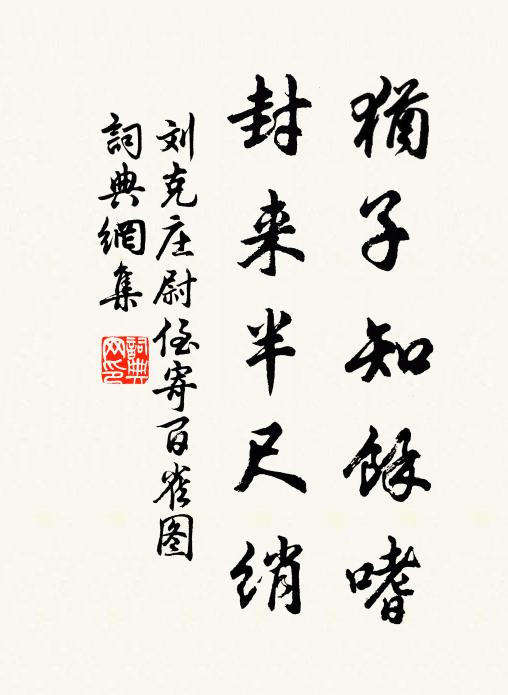 猶子知餘嗜
封来半尺绡
刘克庄尉侄寄百雀图
詞典網集
詞典
网印